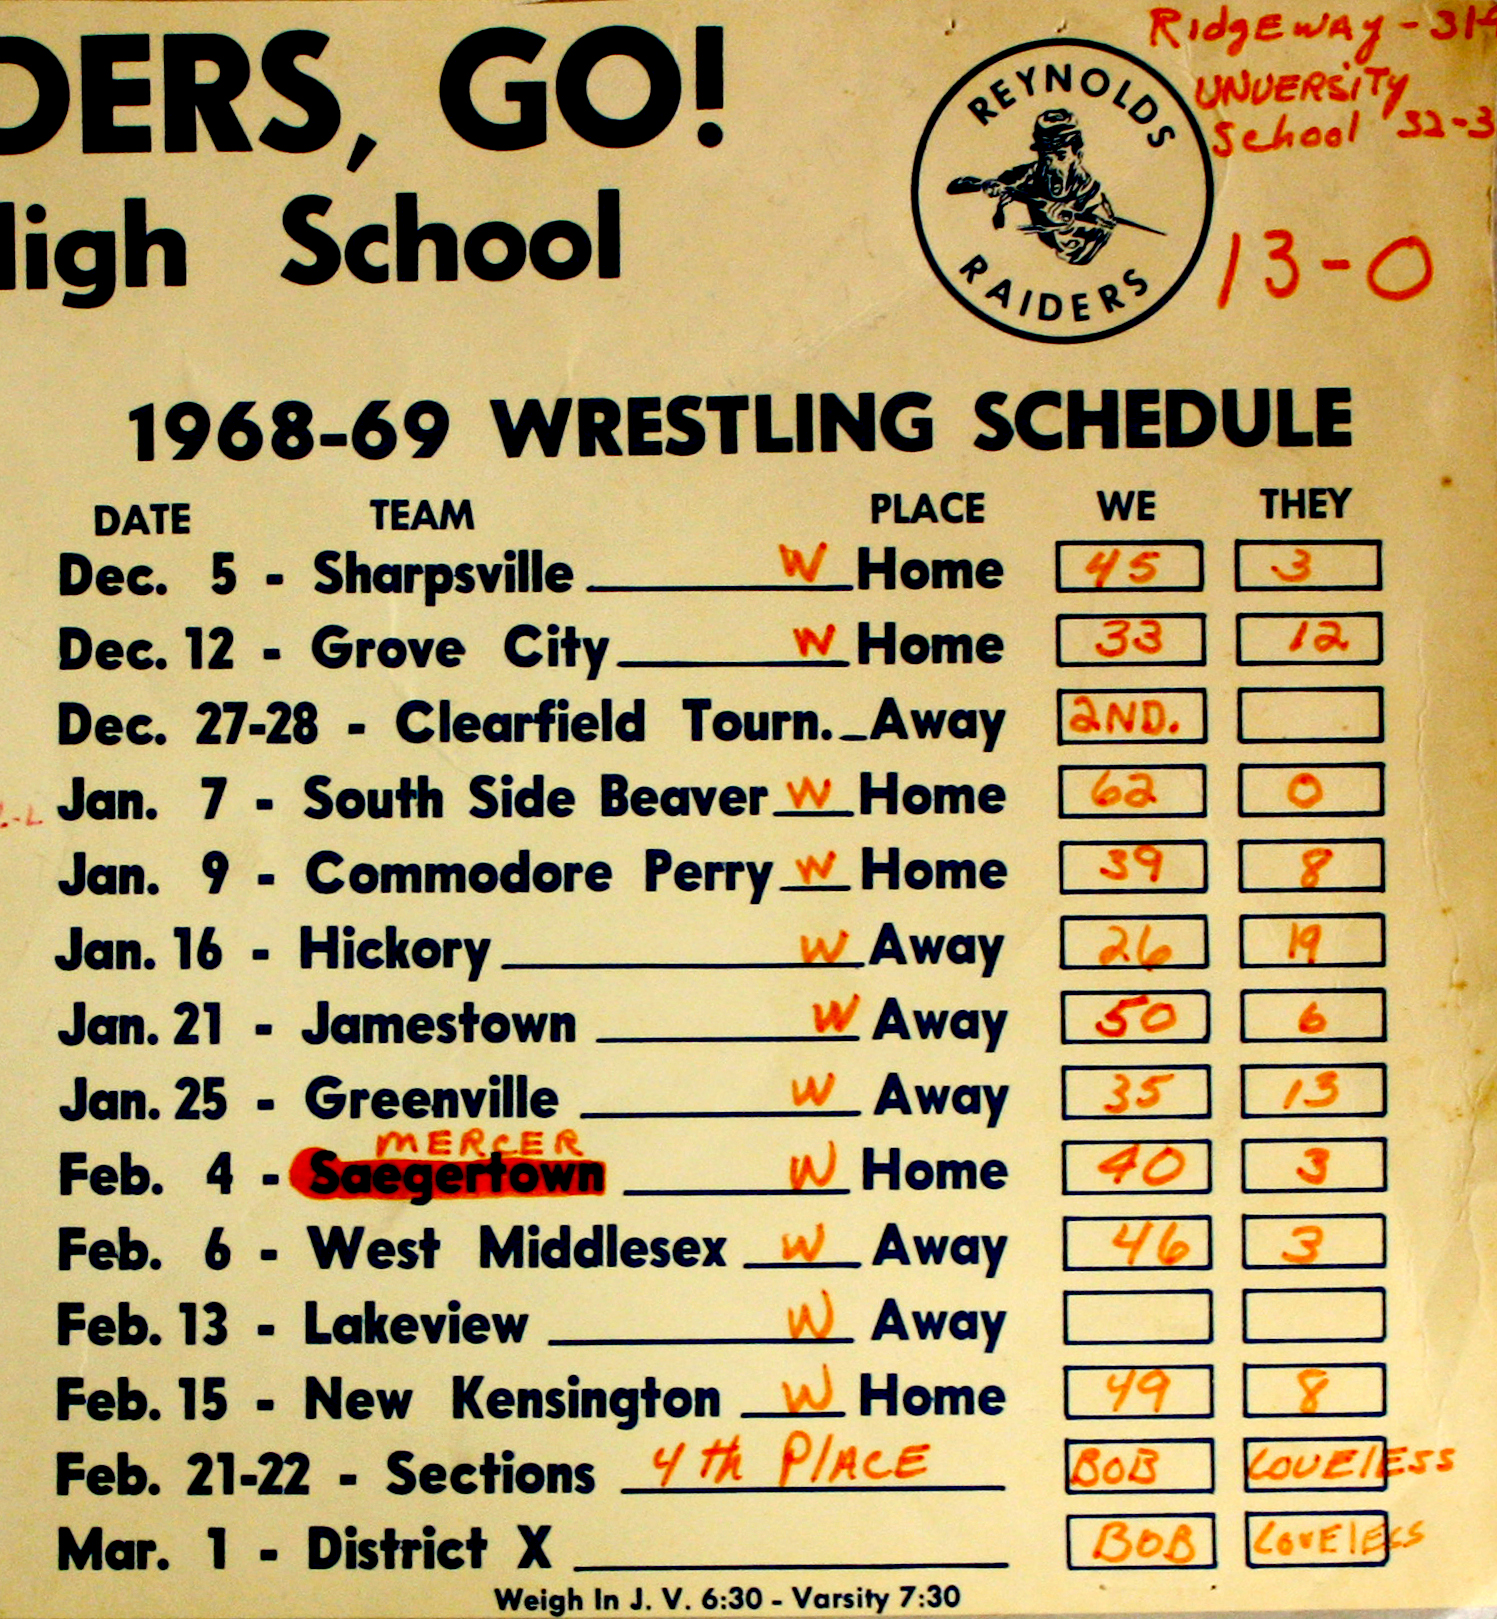 DERS, GO!
High School
REYNOLDS
RAIDERS
RidgEWAY - 31-
UNVERSiTY
School 32-3
13-0
1968-69 WRESTLING SCHEDULE
DATE TEAM PLACE WE THEY
Dec. 5 - Sharpsville W Home 45 3
Dec. 12 - Grove City W Home 33 12
Dec. 27-28 - Clearfield Tourn. Away 2ND.
Jan. 7 - South Side Beaver W Home 62 0
Jan. 9 - Commodore Perry W Home 39 8
Jan. 16 - Hickory W Away 26 19
Jan. 21 - Jamestown W Away 50 6
Jan. 25 - Greenville W Away 35 13
MERCER
Feb. 4 - Saegertown W Home 40 3
Feb. 6 - West Middlesex W Away 46 3
Feb. 13 - Lakeview W Away
Feb. 15 - New Kensington W Home 49 8
Feb. 21-22 - Sections 4th PlACE BOB LOVElESS
Mar. 1 - District X BOB LOVElESS
Weigh In J. V. 6:30 - Varsity 7:30